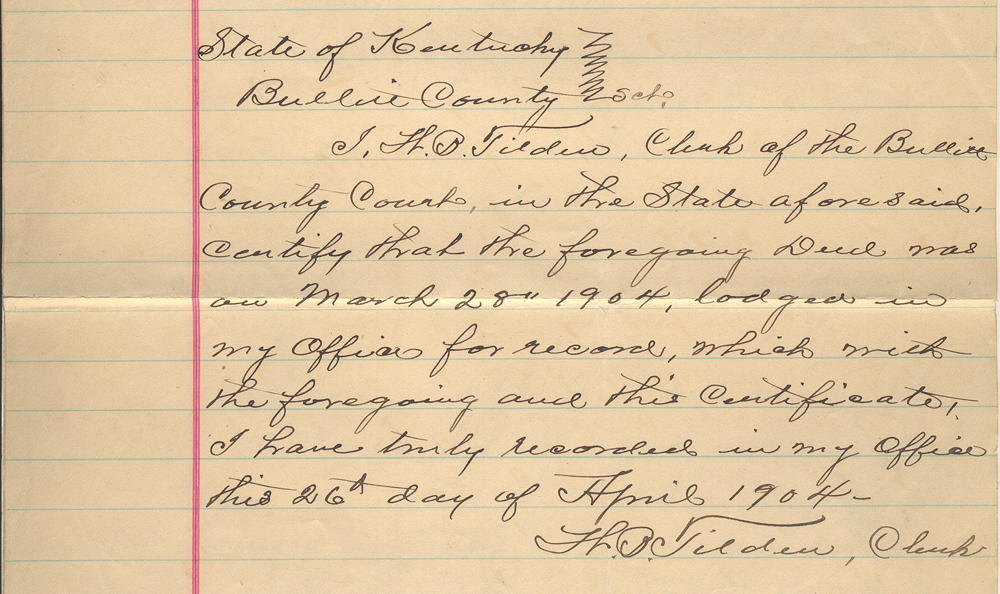 State of Kentucky
Bullitt County Sct.
I, H.B. Tilden, Clerk of the Bullitt
County Court, in the State aforesaid,
certify that the foregoing Deed was
on March 28" 1904, lodged in
my Office for record, which with
the foregoing and this Certificate,
I have truly recorded in my Office
this 26th day of April 1904-
H.B. Tilden, Clerk